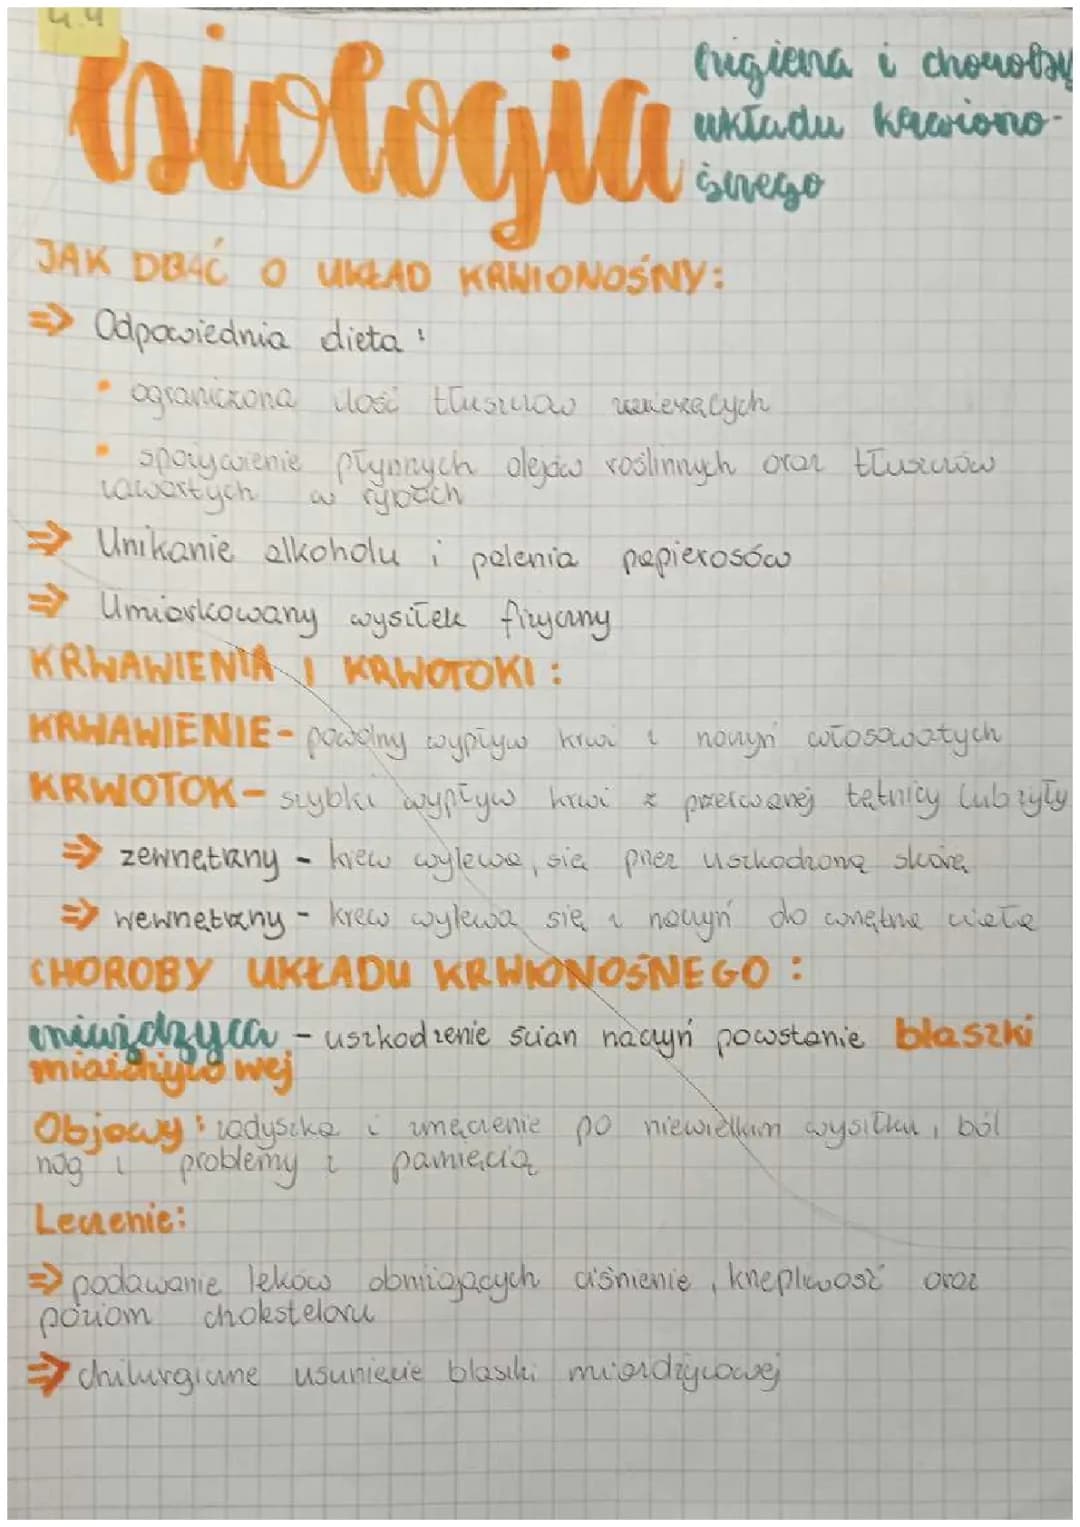 4.4
biologia
higiena i choroby
układu krwiono-
śnego
JAK DBAĆ O UKŁAD KRWIONOŚNY:
⇒ Odpowiednia dieta:
• ograniczona ilość tłuszczów zwierzęcych
• spożywienie płynnych olejów roślinnych oraz tłuszczów
zawartych w rybach
⇒ Unikanie alkoholu i palenia papierosów
⇒ Umiarkowany wysiłek fizyczny
KRWAWIENIA I KRWOTOKI:
KRWAWIENIE - powolny wypływ krwi z naczyń włosowatych
KRWOTOK - szybki wypływ krwi z przerwanej tętnicy lub żyły
⇒ zewnętrzny - krew wylewa się przez uszkodzoną skórę
⇒ wewnętrzny - krew wylewa się z naczyń do wnętrza ciała
CHOROBY UKŁADU KRWIONOŚNEGO:
miażdżyca - uszkodzenie ścian naczyń powstanie blaszki
miażdżycowej
Objawy: zadyszka i zmęczenie po niewielkim wysiłku, ból
nóg i problemy z pamięcią
Leczenie:
⇒ podawanie leków obniżających ciśnienie, krzepliwość oraz
poziom cholesterolu
⇒ chilurgiczne usunięcie blaszki miażdżycowej